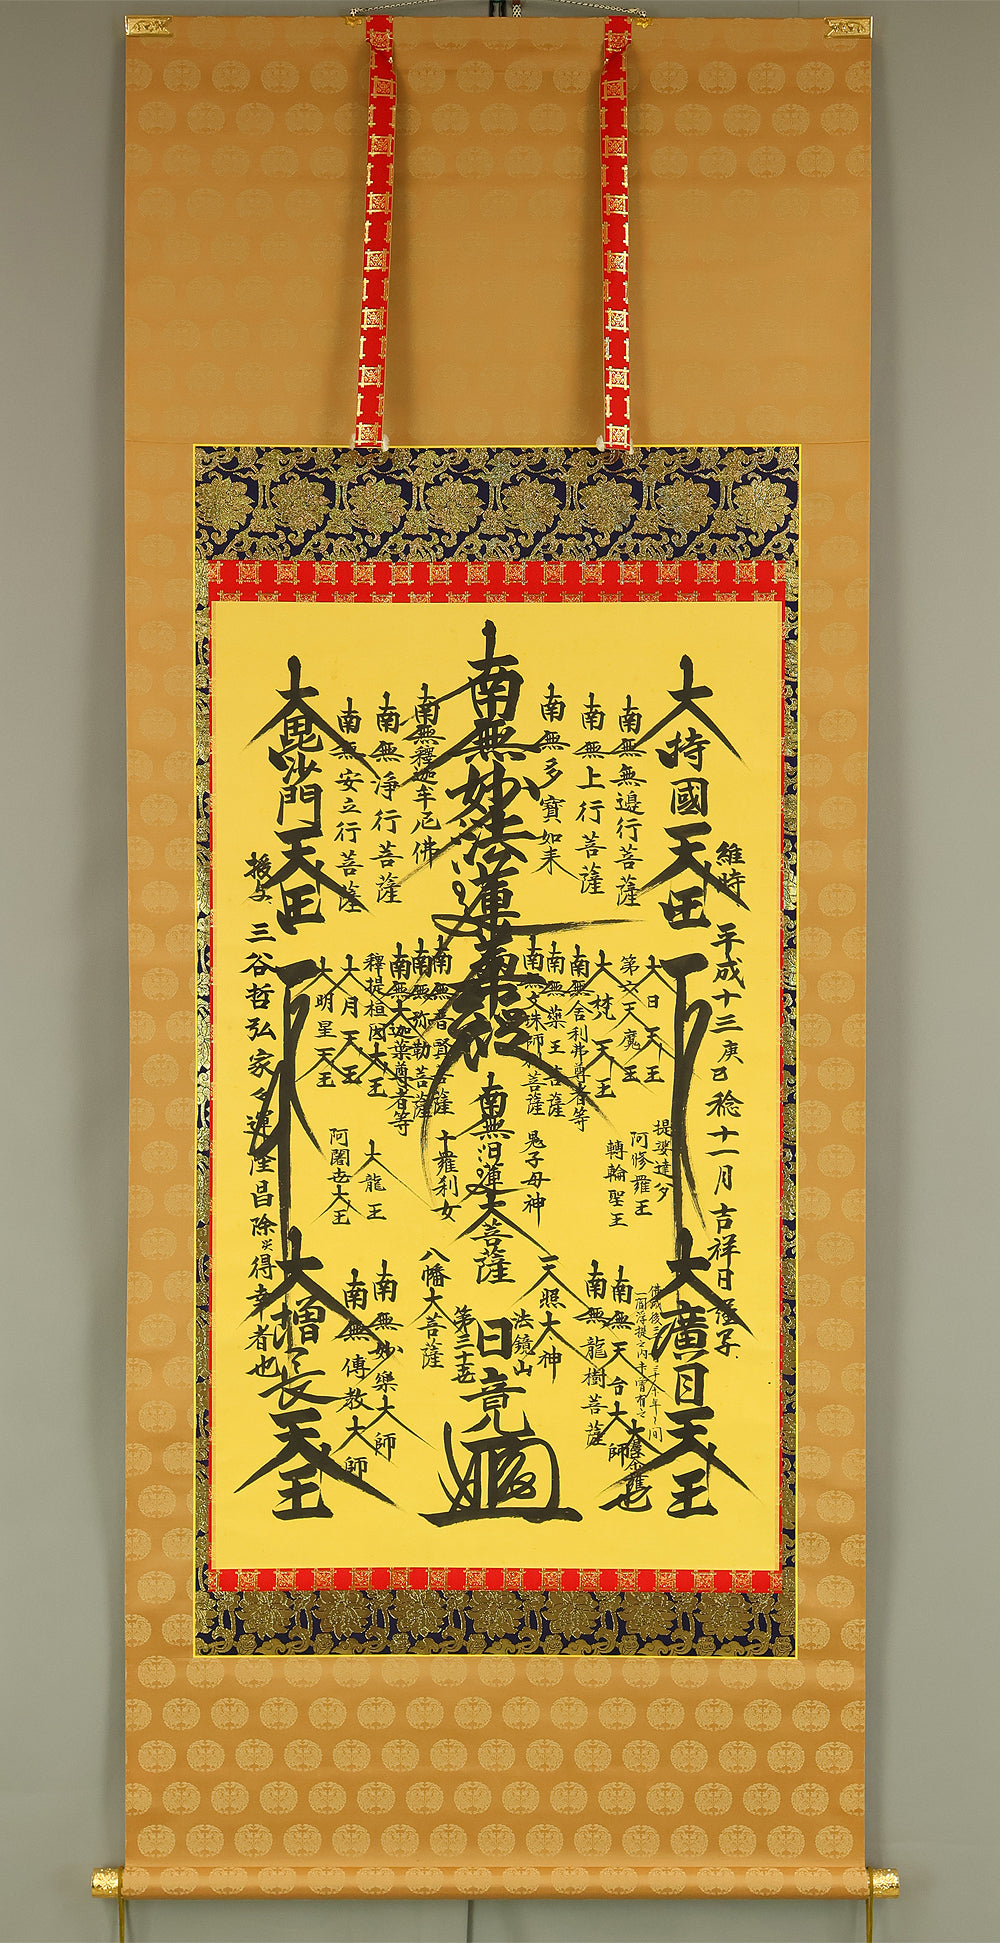 維時 平成十三庚巳稔十一月吉祥日
大持國天王
大廣目天王
南無無邊行菩薩
南無上行菩薩
南無多寶如来
南無妙法蓮華經
南無釋迦牟尼佛
南無浄行菩薩
南無安立行菩薩
大毘沙門天王
大日天王
第六天魔王
大梵天王
南無舎利弗尊者等
南無藥王菩薩
南無文殊師利菩薩
南無普賢菩薩
南無弥勒菩薩
南無大迦葉尊者等
釋提桓因大王
大月天王
大明星天王
提婆達多
阿修羅王
轉輪聖王
鬼子母神
南無日蓮大菩薩
十羅刹女
大龍王
阿闍世大王
南無天台大師
南無龍樹菩薩
天照大神
八幡大菩薩
南無妙樂大師
南無傳教大師
大増長天王
佛滅後二千二百三十余年之間
一閻浮提之内未曽有之
大漫荼羅也
法鏡山
第三十世
日竟
授与 三谷哲弘家 家運隆昌除災得幸者也